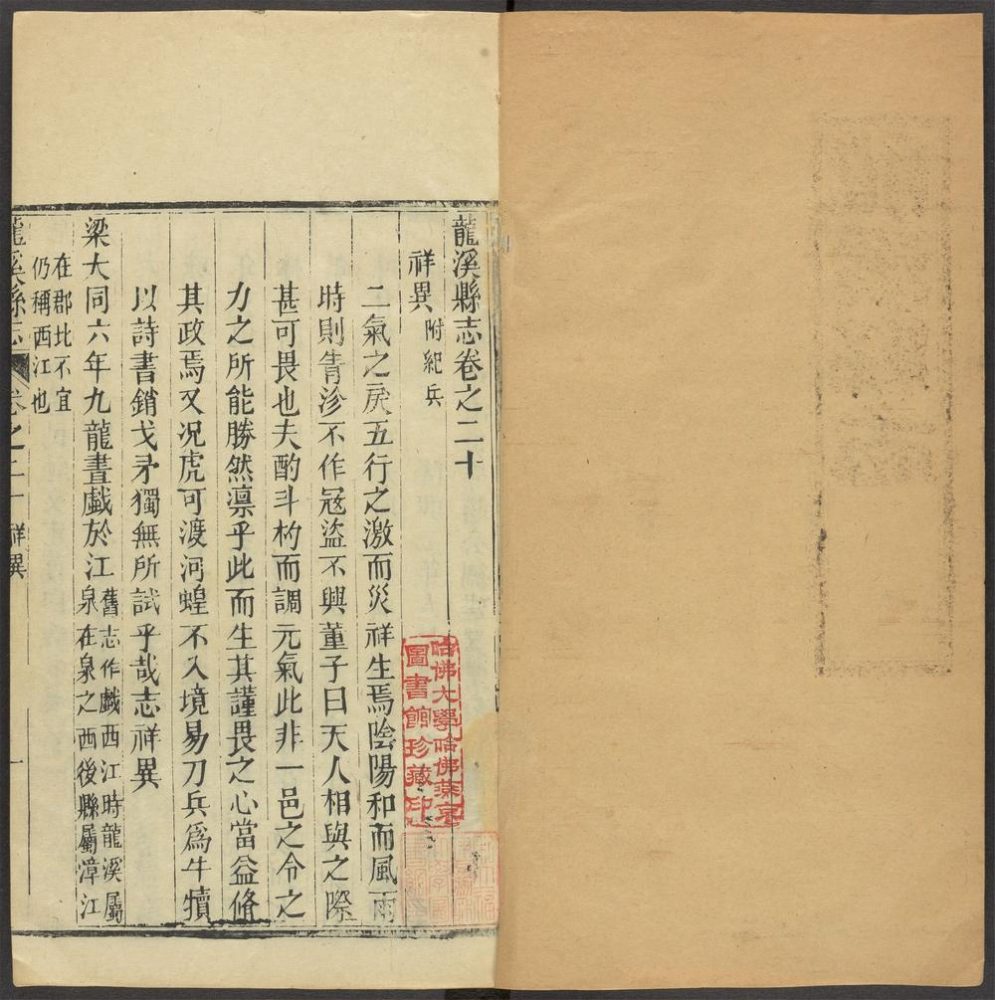 龍溪縣志卷之二十
祥異附紀兵
二氣之戾五行之激而災祥生焉陰陽和而風雨
時則眚沴不作冦盜不興董子曰天人相與之際
甚可畏也夫酌斗杓而調元氣此非一邑之令之
力之所能勝然凛乎此而生其謹畏之心當益脩
其政焉又况虎可渡河蝗不入境易刀兵爲牛犢
以詩書銷戈矛獨無所試乎哉志祥異
梁大同六年九龍晝戲於江舊志作戲西江時龍溪屬
泉在泉之西後縣屬漳江
在郡北不宜
仍稱西江也
龍溪縣志
卷之二十
祥異
一
哈佛大學哈佛燕京
圖書館珍藏印